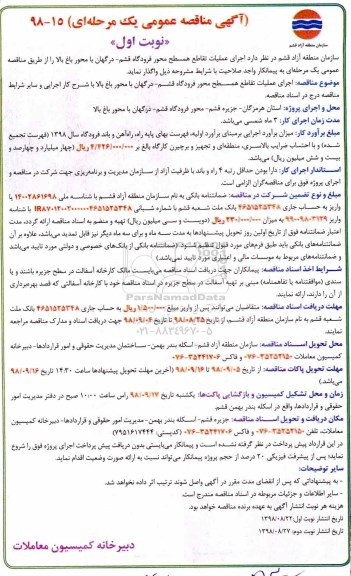 (آگهی مناقصه عمومی یک مرحله‌ای) ۱۵-۹۸
«نوبت اول»
سازمان منطقه آزاد قشم
سازمان منطقه آزاد قشم در نظر دارد اجرای عملیات تقاطع همسطح محور فرودگاه قشم- درگهان با محور باغ بالا را از طریق مناقصه
عمومی یک مرحله‌ای به پیمانکار واجد صلاحیت با شرایط مشروحه ذیل واگذار نماید.
موضوع مناقصه: اجرای عملیات تقاطع همسطح محور فرودگاه قشم- درگهان با محور باغ بالا با شرح کار اجرایی و سایر شرایط
مناقصه درج در اسناد مناقصه.
محل و اجرای پروژه: استان هرمزگان- جزیره قشم- محور فرودگاه قشم- درگهان با محور باغ بالا
مدت زمان اجرای کار: ۳ ماه شمسی می‌باشد.
مبلغ برآورد کار: میزان برآورد اجرایی برمبنای برآورد اولیه، فهرست بهای پایه راه، راه‌آهن و باند فرودگاه سال ۱۳۹۸ (فهرست تجمیع
شده) و با احتساب ضرایب بالاسری، منطقه‌ای و تجهیز و برچیدن کارگاه بالغ بر ۴/۴۲۶/۰۰۰/۰۰۰ ریال (چهار میلیارد و چهارصد و
بیست و شش میلیون ریال) می‌باشد.
استاندارد اجرای کار: دارا بودن حداقل رتبه ۴ راه و باند با ظرفیت آزاد از سازمان مدیریت و برنامه‌ریزی جهت شرکت در مناقصه و
اجرای پروژه فوق برای مناقصه‌گران الزامی است.
مبلغ و نوع تضمین شرکت در مناقصه: ضمانتنامه بانکی به نام سازمان منطقه آزاد قشم با شناسه ملی ۱۴۰۰۲۸۶۱۶۹۸ یا
واریز به حساب جاری ۴۶۵۱۵۲۵۳۴۸ بانک ملت شعبه قشم با شماره شبا
واریز به میزان ۲۳۰/۰۰۰/۰۰۰ ریال (دویست و سی میلیون ریال) تهیه و منضم به اسناد مناقصه ارائه گردد، مدت
اعتبار ضمانتنامه فوق از تاریخ اولین روز تحویل پیشنهادها به مدت سه ماه و برای سه ماه دیگر نیز قابل تمدید می‌باشد، علاوه بر آن
ضمانتنامه‌های بانکی باید طبق فرم‌های مورد قبول تنظیم شود (ضمانتنامه بانکی از بانک‌های خصوصی و دولتی مورد تایید می‌باشد
و ضمانتنامه‌های مربوط به موسسات مالی و اعتباری مورد تایید نمی‌باشد)
شرایط اخذ اسناد مناقصه: پیمانکاران جهت دریافت اسناد مناقصه می‌بایست مالک کارخانه آسفالت در سطح جزیره باشند و یا
سندی (موافقتنامه یا تفاهمنامه) مبنی بر تهیه آسفالت در سطح جزیره در اسناد مناقصه خود با کارخانه آسفالتی که قصد بهره‌مندی
از آن را دارند، ارائه نمایند.
مهلت دریافت اسناد مناقصه: متقاضیان می‌توانند پس از واریز مبلغ ۱/۵۰۰/۰۰۰ ریال به حساب جاری ۴۶۵۱۵۲۵۳۴۸ بانک ملت
شعبه قشم به نام سازمان منطقه آزاد قشم، از تاریخ ۹۸/۰۸/۲۵ تا تاریخ ۹۸/۰۹/۰۴ جهت دریافت اسناد و مدارک مناقصه مراجعه
نمایند.
محل تحویل اسناد مناقصه: سازمان منطقه آزاد قشم- اسکله بندر بهمن- ساختمان مدیریت حقوقی و امور قراردادها- دبیرخانه
کمیسیون معاملات ۳۵۲۵۲۱۵۰-۰۷۶ و فاکس ۳۵۲۴۱۷۰۶-۰۷۶
مهلت تحویل پاکات مناقصه: از تاریخ ۹۸/۰۹/۰۵ تا ۹۸/۰۹/۱۶ (آخرین مهلت تحویل پیشنهادها ساعت ۱۴:۳۰ تاریخ ۹۸/۰۹/۱۶
می‌باشد)
زمان و محل تشکیل کمیسیون و بازگشایی پاکت‌ها: یکشنبه تاریخ ۹۸/۰۹/۱۷ راس ساعت ۱۰:۰۰ صبح در دفتر مدیریت امور
حقوقی و قراردادها واقع در اسکله بندر بهمن قشم
مکان دریافت و تحویل اسناد مناقصه: جزیره قشم- اسکله بندر بهمن- مدیریت امور حقوقی و قراردادها- دبیرخانه کمیسیون
معاملات، تلفن ۳۵۲۵۲۱۵۰-۰۷۶ و فاکس ۳۵۲۴۱۷۰۶-۰۷۶ (کدپستی: ۷۹۵۱۶۱۷۴۴۴)
در این قرارداد پیش پرداخت در نظر گرفته نشده است و پیمانکار می‌بایستی بدون دریافت پیش پرداخت اجرای پروژه فوق را شروع
نماید؛ پس از پیشرفت فیزیکی ۲۰ درصد از حجم پروژه پیمانکار می‌تواند نسبت به ارائه صورت وضعیت اقدام نماید.
سایر توضیحات:
- به پیشنهاداتی که پس از انقضای مدت مقرر در آگهی واصل شوند ترتیب اثر داده نخواهد شد.
- سایر اطلاعات و جزئیات مربوطه در اسناد مناقصه مندرج است.
هزینه هر نوبت انتشار آگهی به عهده برنده مناقصه خواهد بود.
تاریخ انتشار نوبت اول: ۱۳۹۸/۰۸/۲۲
تاریخ انتشار نوبت دوم: ۱۳۹۸/۰۸/۲۷
دبیرخانه کمیسیون معاملات
ParsNamadData
۰۲۱-۸۸۳۴۹۶۷۰-۵